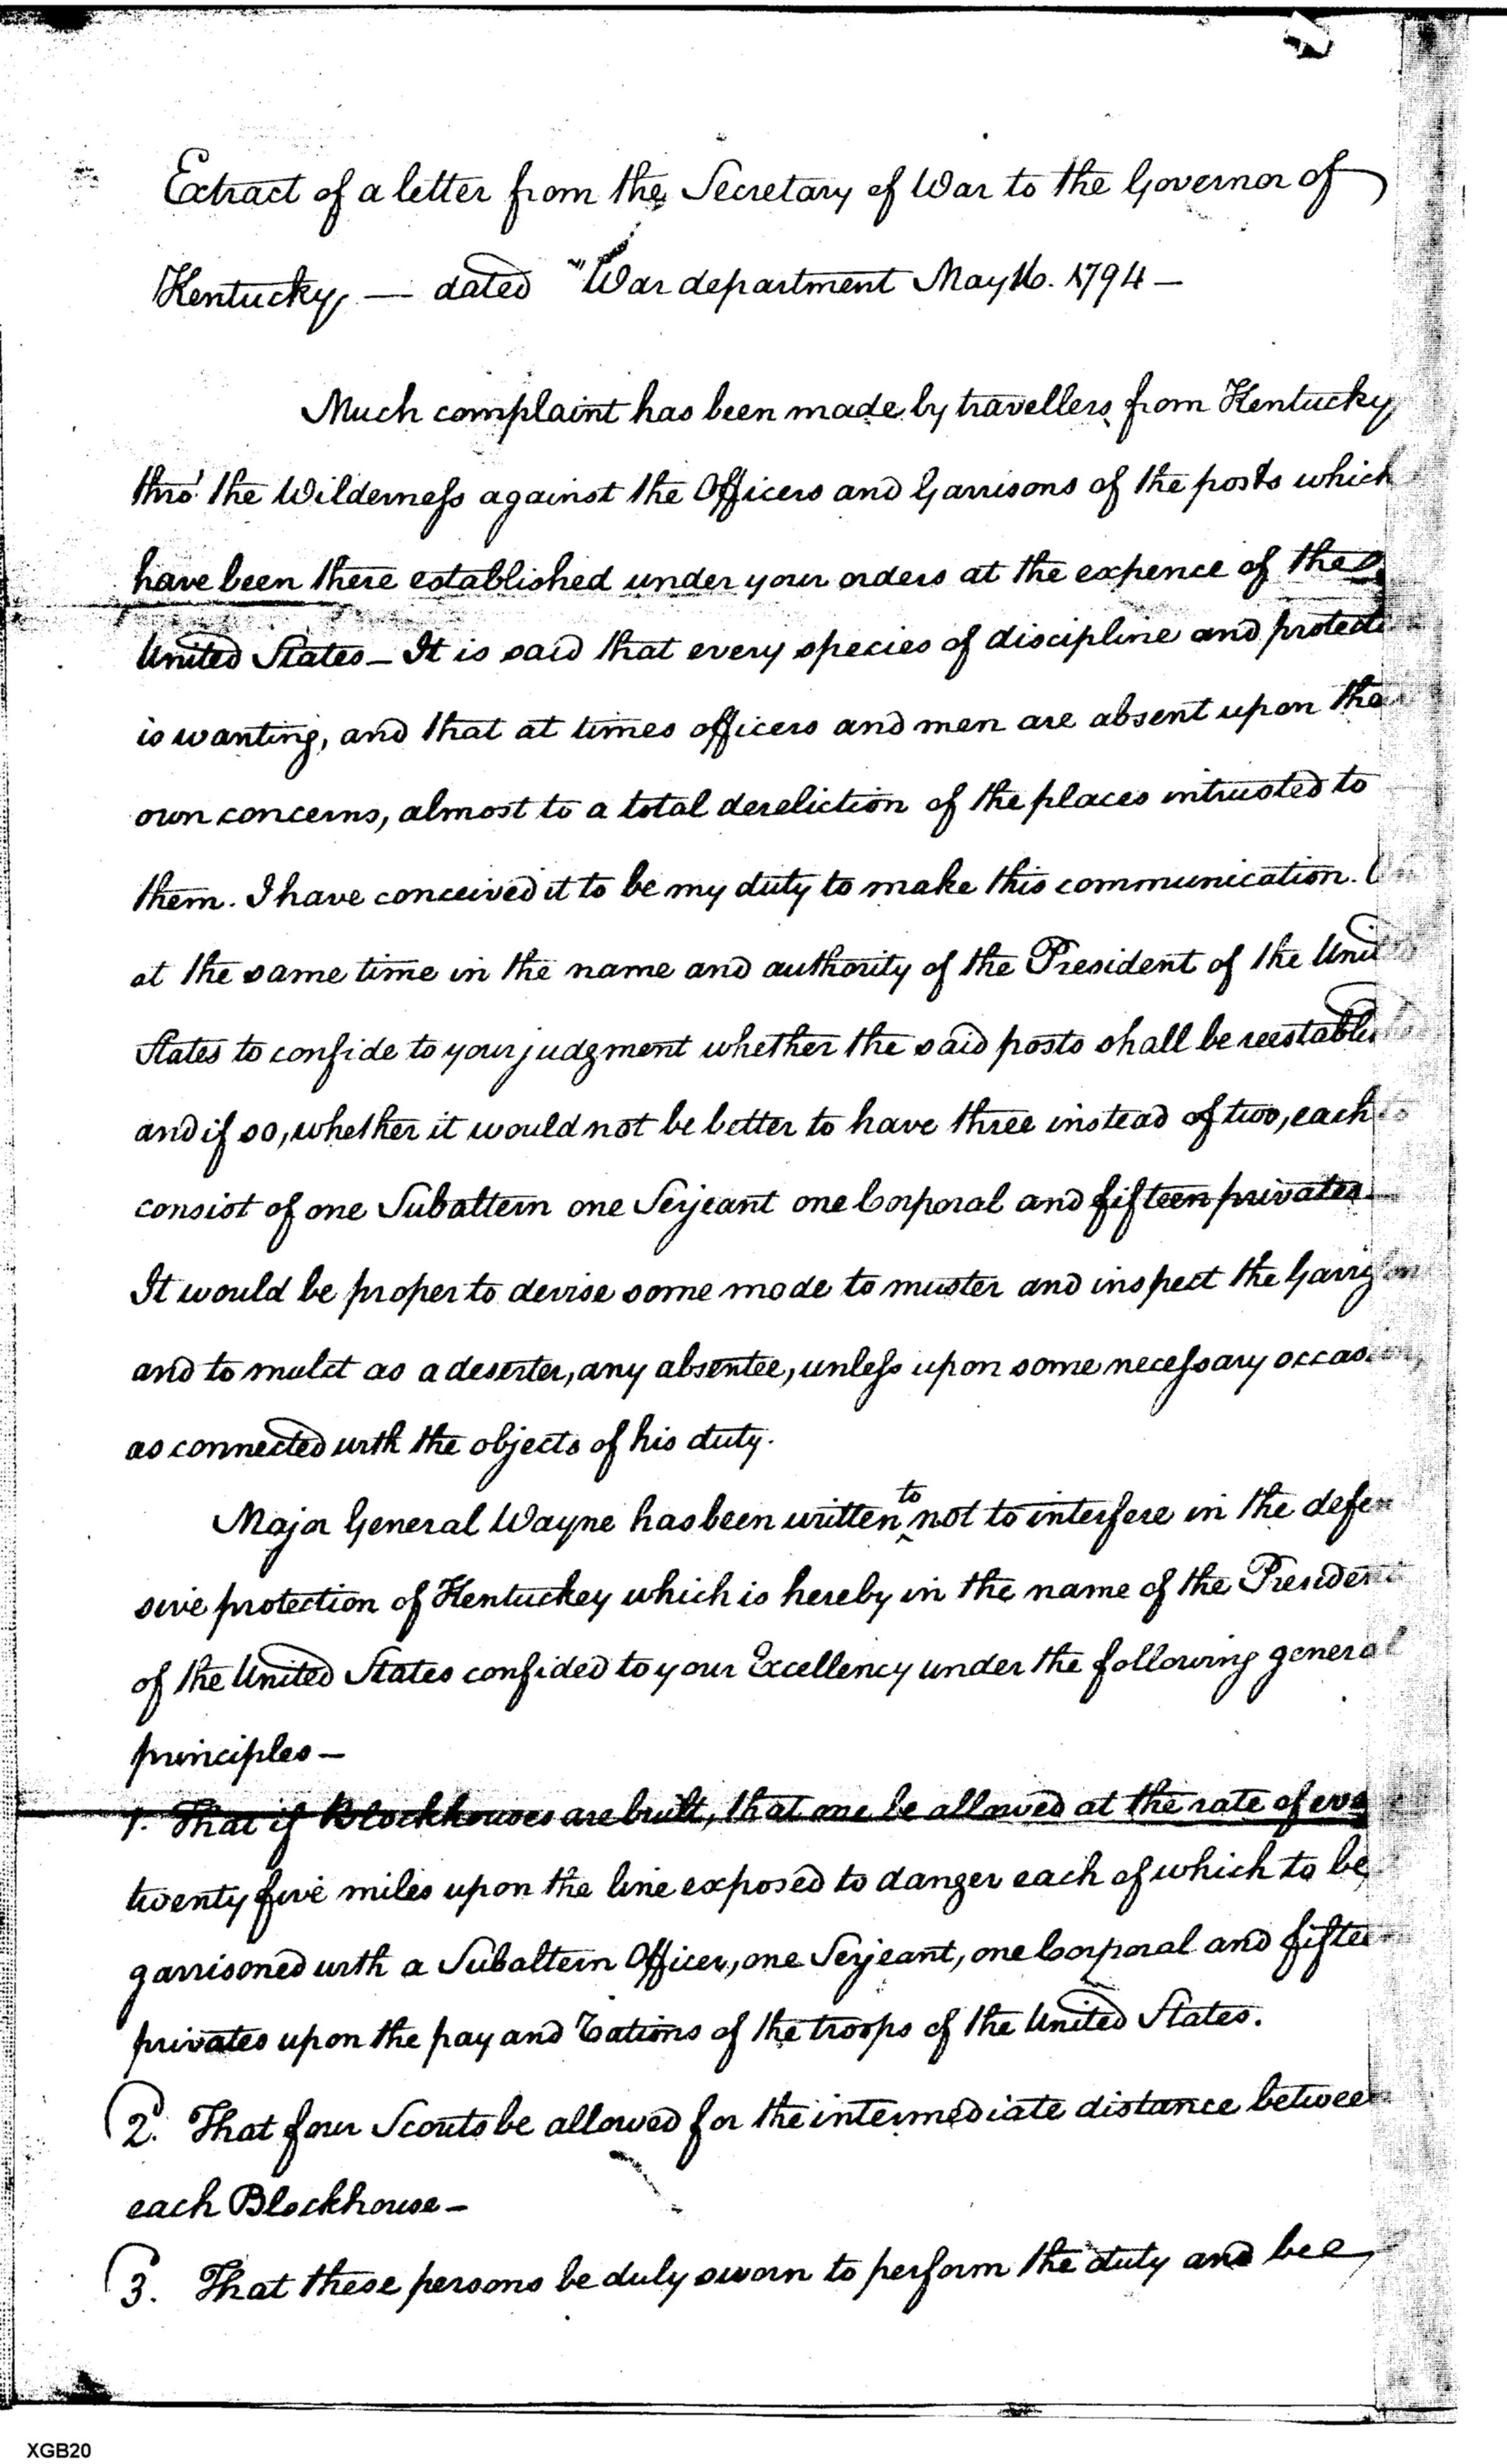 Extract of a letter from the Secretary of War to the Governor of
Kentucky, — dated "War department May 16. 1794 —
Much complaint has been made by travellers from Kentucky
thro' the Wilderness against the Officers and Garrisons of the posts which
have been there established under your orders at the expence of the
United States — It is said that every species of discipline and protecti
is wanting, and that at times officers and men are absent upon the
own concerns, almost to a total dereliction of the places intrusted to
them. I have conceived it to be my duty to make this communication.
at the same time in the name and authority of the President of the United
States to confide to your judgment whether the said posts shall be reestablis
and if so, whether it would not be better to have three instead of two, each to
consist of one Subaltern one Serjeant one Corporal and fifteen privates —
It would be proper to devise some mode to muster and inspect the Garrison
and to mulct as a deserter, any absentee, unless upon some necessary occasion,
as connected with the objects of his duty.
Major General Wayne has been written to not to interfere in the defen
sive protection of Kentuckey which is hereby in the name of the President
of the United States confided to your Excellency under the following general
principles —
1. That if Blockhouses are built, that one be allowed at the rate of eve
twenty five miles upon the line exposed to danger each of which to be
garrisoned with a Subaltern Officer, one Serjeant, one Corporal and fifteen
privates upon the pay and rations of the troops of the United States.
2d. That four Scouts be allowed for the intermediate distance between
each Blockhouse —
3. That these persons be duly sworn to perform the duty and be
XGB20